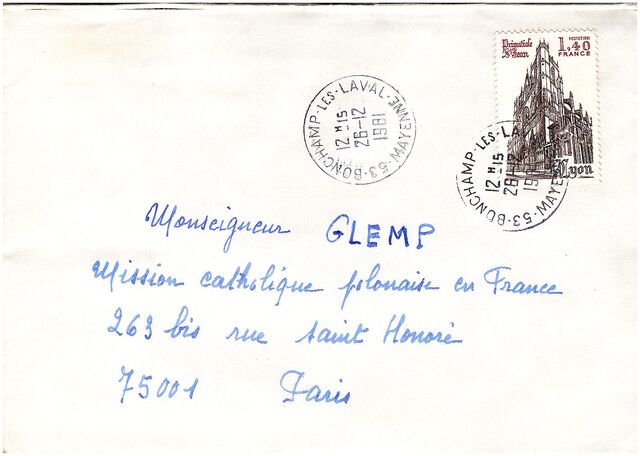 Primatiale
St Jean
POSTES 1981
1,40
FRANCE
Lyon
BONCHAMP-LES-LAVAL-MAYENNE
12 H 15
26-12
1981
53
BONCHAMP-LES-LAVAL
12 H 15
26-12
19
53-MAYE
Monseigneur GLEMP
Mission catholique polonaise en France
263 bis rue Saint Honoré
75001 Paris